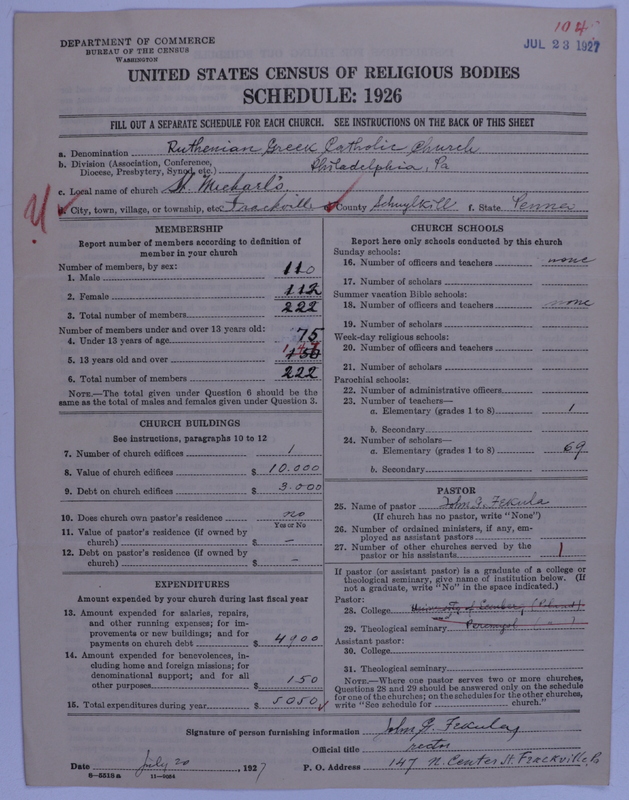 104
JUL 23 1927
DEPARTMENT OF COMMERCE
BUREAU OF THE CENSUS
WASHINGTON
UNITED STATES CENSUS OF RELIGIOUS BODIES
SCHEDULE: 1926
FILL OUT A SEPARATE SCHEDULE FOR EACH CHURCH. SEE INSTRUCTIONS ON THE BACK OF THIS SHEET
a. Denomination Ruthenian Greek Catholic Church
b. Division (Association, Conference, Diocese, Presbytery, Synod, etc.) Philadelphia, Pa
c. Local name of church St. Michael's
City, town, village, or township, etc. Frackville e. County Schuylkill f. State Penna
MEMBERSHIP
Report number of members according to definition of member in your church
Number of members, by sex:
1. Male 110
2. Female 112
3. Total number of members 222
Number of members under and over 13 years old:
4. Under 13 years of age 75
5. 13 years old and over 147
6. Total number of members 222
NOTE.—The total given under Question 6 should be the same as the total of males and females given under Question 3.
CHURCH BUILDINGS
See instructions, paragraphs 10 to 12
7. Number of church edifices 1
8. Value of church edifices $ 10.000
9. Debt on church edifices $ 3.000
10. Does church own pastor's residence no
Yes or No
11. Value of pastor's residence (if owned by church) $ –
12. Debt on pastor's residence (if owned by church) $ –
EXPENDITURES
Amount expended by your church during last fiscal year
13. Amount expended for salaries, repairs, and other running expenses; for improvements or new buildings; and for payments on church debt $ 4900
14. Amount expended for benevolences, including home and foreign missions; for denominational support; and for all other purposes $ 150
15. Total expenditures during year $ 5050
CHURCH SCHOOLS
Report here only schools conducted by this church
Sunday schools:
16. Number of officers and teachers none
17. Number of scholars
Summer vacation Bible schools:
18. Number of officers and teachers none
19. Number of scholars
Week-day religious schools:
20. Number of officers and teachers
21. Number of scholars
Parochial schools:
22. Number of administrative officers
23. Number of teachers—
a. Elementary (grades 1 to 8) 1
b. Secondary
24. Number of scholars—
a. Elementary (grades 1 to 8) 69
b. Secondary
PASTOR
25. Name of pastor John G. Fekula
(If church has no pastor, write "None")
26. Number of ordained ministers, if any, employed as assistant pastors
27. Number of other churches served by the pastor or his assistants 1
If pastor (or assistant pastor) is a graduate of a college or theological seminary, give name of institution below. (If not a graduate, write "No" in the space indicated.)
Pastor:
28. College University of Lemberg (Poland)
29. Theological seminary
Assistant pastor:
30. College
31. Theological seminary
NOTE.—Where one pastor serves two or more churches, Questions 28 and 29 should be answered only on the schedule for one of the churches; on the schedules for the other churches, write "See schedule for church."
Signature of person furnishing information John G. Fekula
Official title rector
Date July 20, 1927
P. O. Address 147 N. Center St. Frackville, Pa
8—5518a 11—9054